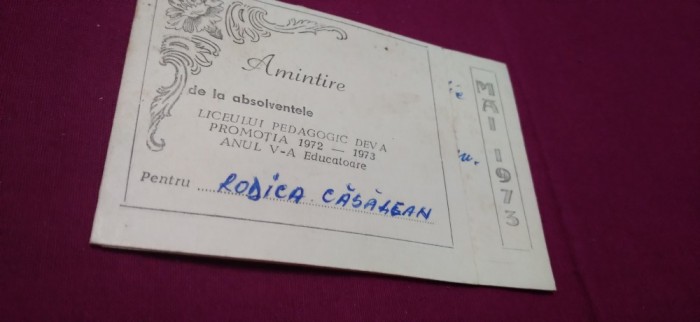 Amintire
de la absolventele
LICEULUI PEDAGOGIC DEVA
PROMOTIA 1972 — 1973
ANUL V-A Educatoare
Pentru RODICA CĂSĂLEAN
MAI 1973